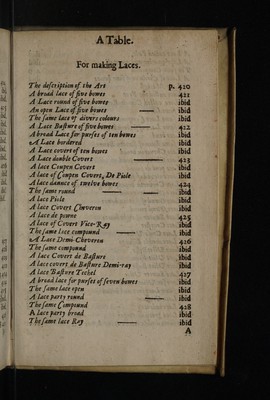 A Table.
For making Laces.
The description of the Art p. 420
A broad lace of five bowes 421
A Lace round of five bowes ibid
An open Lace of five bowes ibid
The same lace of divers colours ibid
A Lace Basture of five bowes. 422
A broad Lace for purses of ten bowes ibid
A Lace bordered ibid
A Lace covert of ten bowes ibid
A Lace double Covert 423
A lace Coupen Covert ibid
A lace of Coupen Covert, De Piole ibid
A lace daunce of twelve bowes 424
The same round ibid
A lace Piole ibid
A lace Covert Cheveron ibid
A lace de porne 425
A lace of Covert Vice-Ray ibid
The same lace compound ibid
A Lace Demi-Cheveron 426
The same compound ibid
A lace Covert de Basture ibid
A lace covert de Basture Demi-ray ibid
A lace Basture Techel 427
A broad lace for purses of seven bowes ibid
The same lace open ibid
A lace party round ibid
The same Compound 428
A lace party broad ibid
The same lace Ray ibid
A